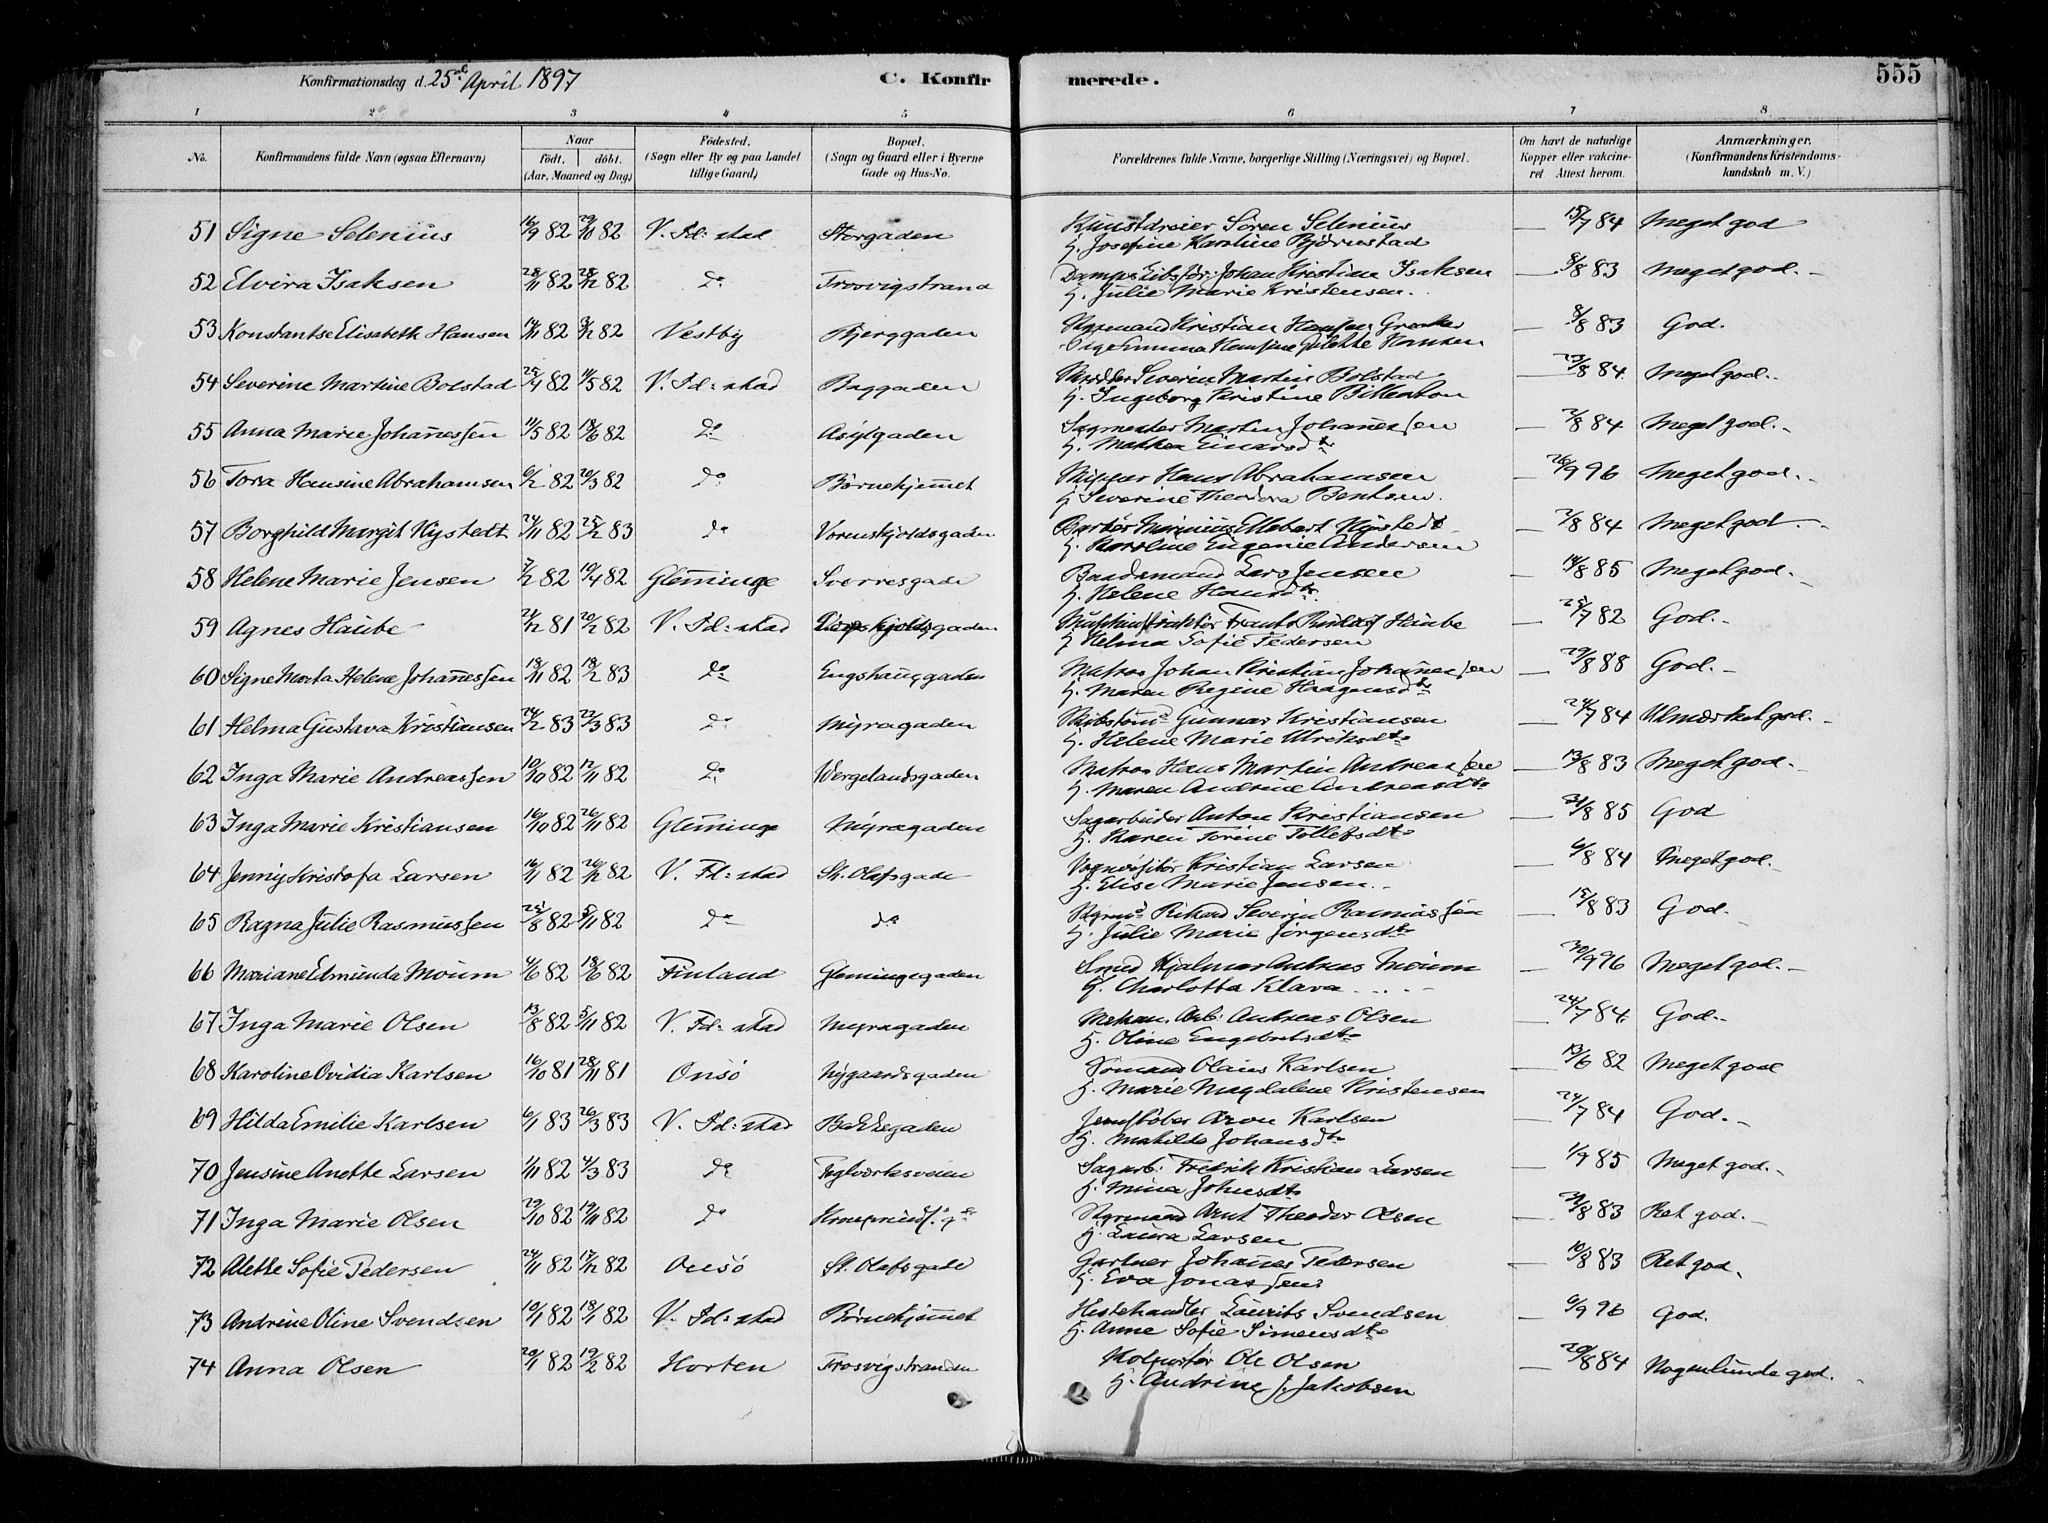 Konfirmationsdag d. 25de April 1897 C. Konfirmerede. 555
1 2 3 4 5 6 7 8
No. Konfirmandens fulde Navn (ogsaa Efternavn) Naar født. døbt. (Aar, Maaned og Dag) Fødested. (Sogn eller By og paa Landet tillige Gaard) Bopæl. (Sogn og Gaard eller i Byerne Gade og Hus-No. Forældrenes fulde Navne, borgerlige Stilling (Næringsvei) og Bopæl. Om havt de naturlige Kopper eller vakcineret Attest herom. Anmærkninger. (Konfirmandens Kristendomskundskab m. V.)
51 Signe Selenius 16/9 82 29/10 82 V. Fd:stad Storgaden Kunstdreier Søren Selenius 15/7 84 Meget god
H. Josefine Karoline Bjørnstad
52 Elvira Isaksen 28/11 82 28/12 82 do Trosvigstrand Johan Kristian Isaksen — 8/8 83 Meget god. -
H. Julie Marie Kristensen.
53 Konstantse Elisabeth Hansen 14/10 82 3/12 82 Vestby Bjerggaden Styrmand Kristian Hansen — 8/8 83 God.
Hansen
54 Severine Martine Bolstad 25/4 82 11/5 82 V. Fd:stad Baggaden Severin Martin Bolstad — 23/8 84 Meget god.-
H. Ingeborg Kristine
55 Anna Marie Johannessen 11/5 82 18/6 82 do Asylgaden Sagmester Martin Johannessen — 2/8 84 Meget god.-
H. Mathea Einarsdtr
56 Tora Hansine Abrahamsen 6/2 82 20/3 82 do Børnehjemmet Skipper Hans Abrahamsen — 26/9 96 Meget god. -
H. Severine Theodora Bentsen.
57 Borghild Margit Nystedt 24/11 82 25/2 83 do Vorenskjoldsgaden Nystedt — 2/8 84 Meget god -
H. Karoline Eugenie Andersen
58 Helene Marie Jensen 7/2 82 10/4 82 Glemminge Sverresgade Baadsmand Lars Jensen — 14/8 85 Meget god.
H. Helene Hansdtr.
59 Agnes Haube 24/12 81 20/2 82 V. Fd:stad Haube 25/7 82 God.-
H. Helma Sofie Pedersen
60 Signe Marta Helene Johannessen 18/11 82 18/2 83 do Engshauggaden Matros Johan Kristian Johannessen — 29/8 88 God.-
H. Maren Regine Haagensdtr
61 Helma Gustava Kristiansen 24/2 83 22/3 83 do Myragaden Skibstømd Gunnar Kristiansen — 24/7 84 Udmærket god.-
H. Helene Marie Ulriksdtr
62 Inga Marie Andreassen 10/10 82 12/11 82 do Wergelandsgaden Matros Hans Martin Andreassen — 13/8 83 Meget god.-
H. Maren Andrine Andreasdtr
63 Inga Marie Kristiansen 16/10 82 26/11 82 Glemminge Myragaden Sagarbeider Anton Kristiansen — 31/8 85 God
H. Karen Torine Tollefsdtr
64 Jenny Kristofa Larsen 16/1 82 26/2 82 V. Fd:stad St. Olafsgade Kristian Larsen — 6/8 84 Meget god.
H. Elise Marie Jensen.-
65 Ragna Julie Rasmussen 25/8 82 5/11 82 do do Styrmd Rikard Severin Rasmussen — 15/8 83 God.
H. Julie Marie Jørgensdtr
66 Mariane Edmunda Moum 4/6 82 18/6 82 Finland Glemingegaden Smed Hjalmar Andreas Moum — 30/9 96 Meget god.-
H. Charlotta Klara . . . . -
67 Inga Marie Olsen 13/8 82 5/11 82 V. Fd:stad Myragaden Mekan. Arb. Andreas Olsen — 24/7 84. God.-
H. Oline Engebretsdtr
68 Karoline Ovidia Karlsen 16/10 81 28/11 81 Onsö Nygaardsgaden Sømand Olaus Karlsen — 13/6 82 Meget god
H. Marie Magdalene Kristensen
69 Hilda Emilie Karlsen 6/1 83 26/3 83 V. Fd:stad Bakkegaden Jernstøber Aron Karlsen — 24/7 84 God.-
H. Matilde Johansdtr
70 Jensine Anette Larsen 1/11 82 4/3 83 do Teglverksveien Sagarb. Fredrik Kristian Larsen — 1/9 85 Meget god.-
H. Mina Johnsdtr
71 Inga Marie Olsen 29/10 82 19/11 82 do Styrmand Arnt Theodor Olsen — 31/8 83 Ret god.-
H. Laura Larsen
72 Alette Sofie Pedersen 24/11 82 17/12 82 Onsö St. Olafsgade Gartner Johannes Pedersen — 10/8 83 Ret god.
H. Eva Jonassen
73 Andrine Oline Svendsen 10/1 82 18/1 82 V. Fd:stad Børnehjemmet Hestehandler Laurits Svendsen — 6/9 96 God.
H. Anne Sofie Simensdtr
74 Anna Olsen 20/1 82 19/2 82 Horten Trosvigstranden Ole Olsen — 20/8 84 Nogenlunde god.
H. Andrine J. Jakobsen